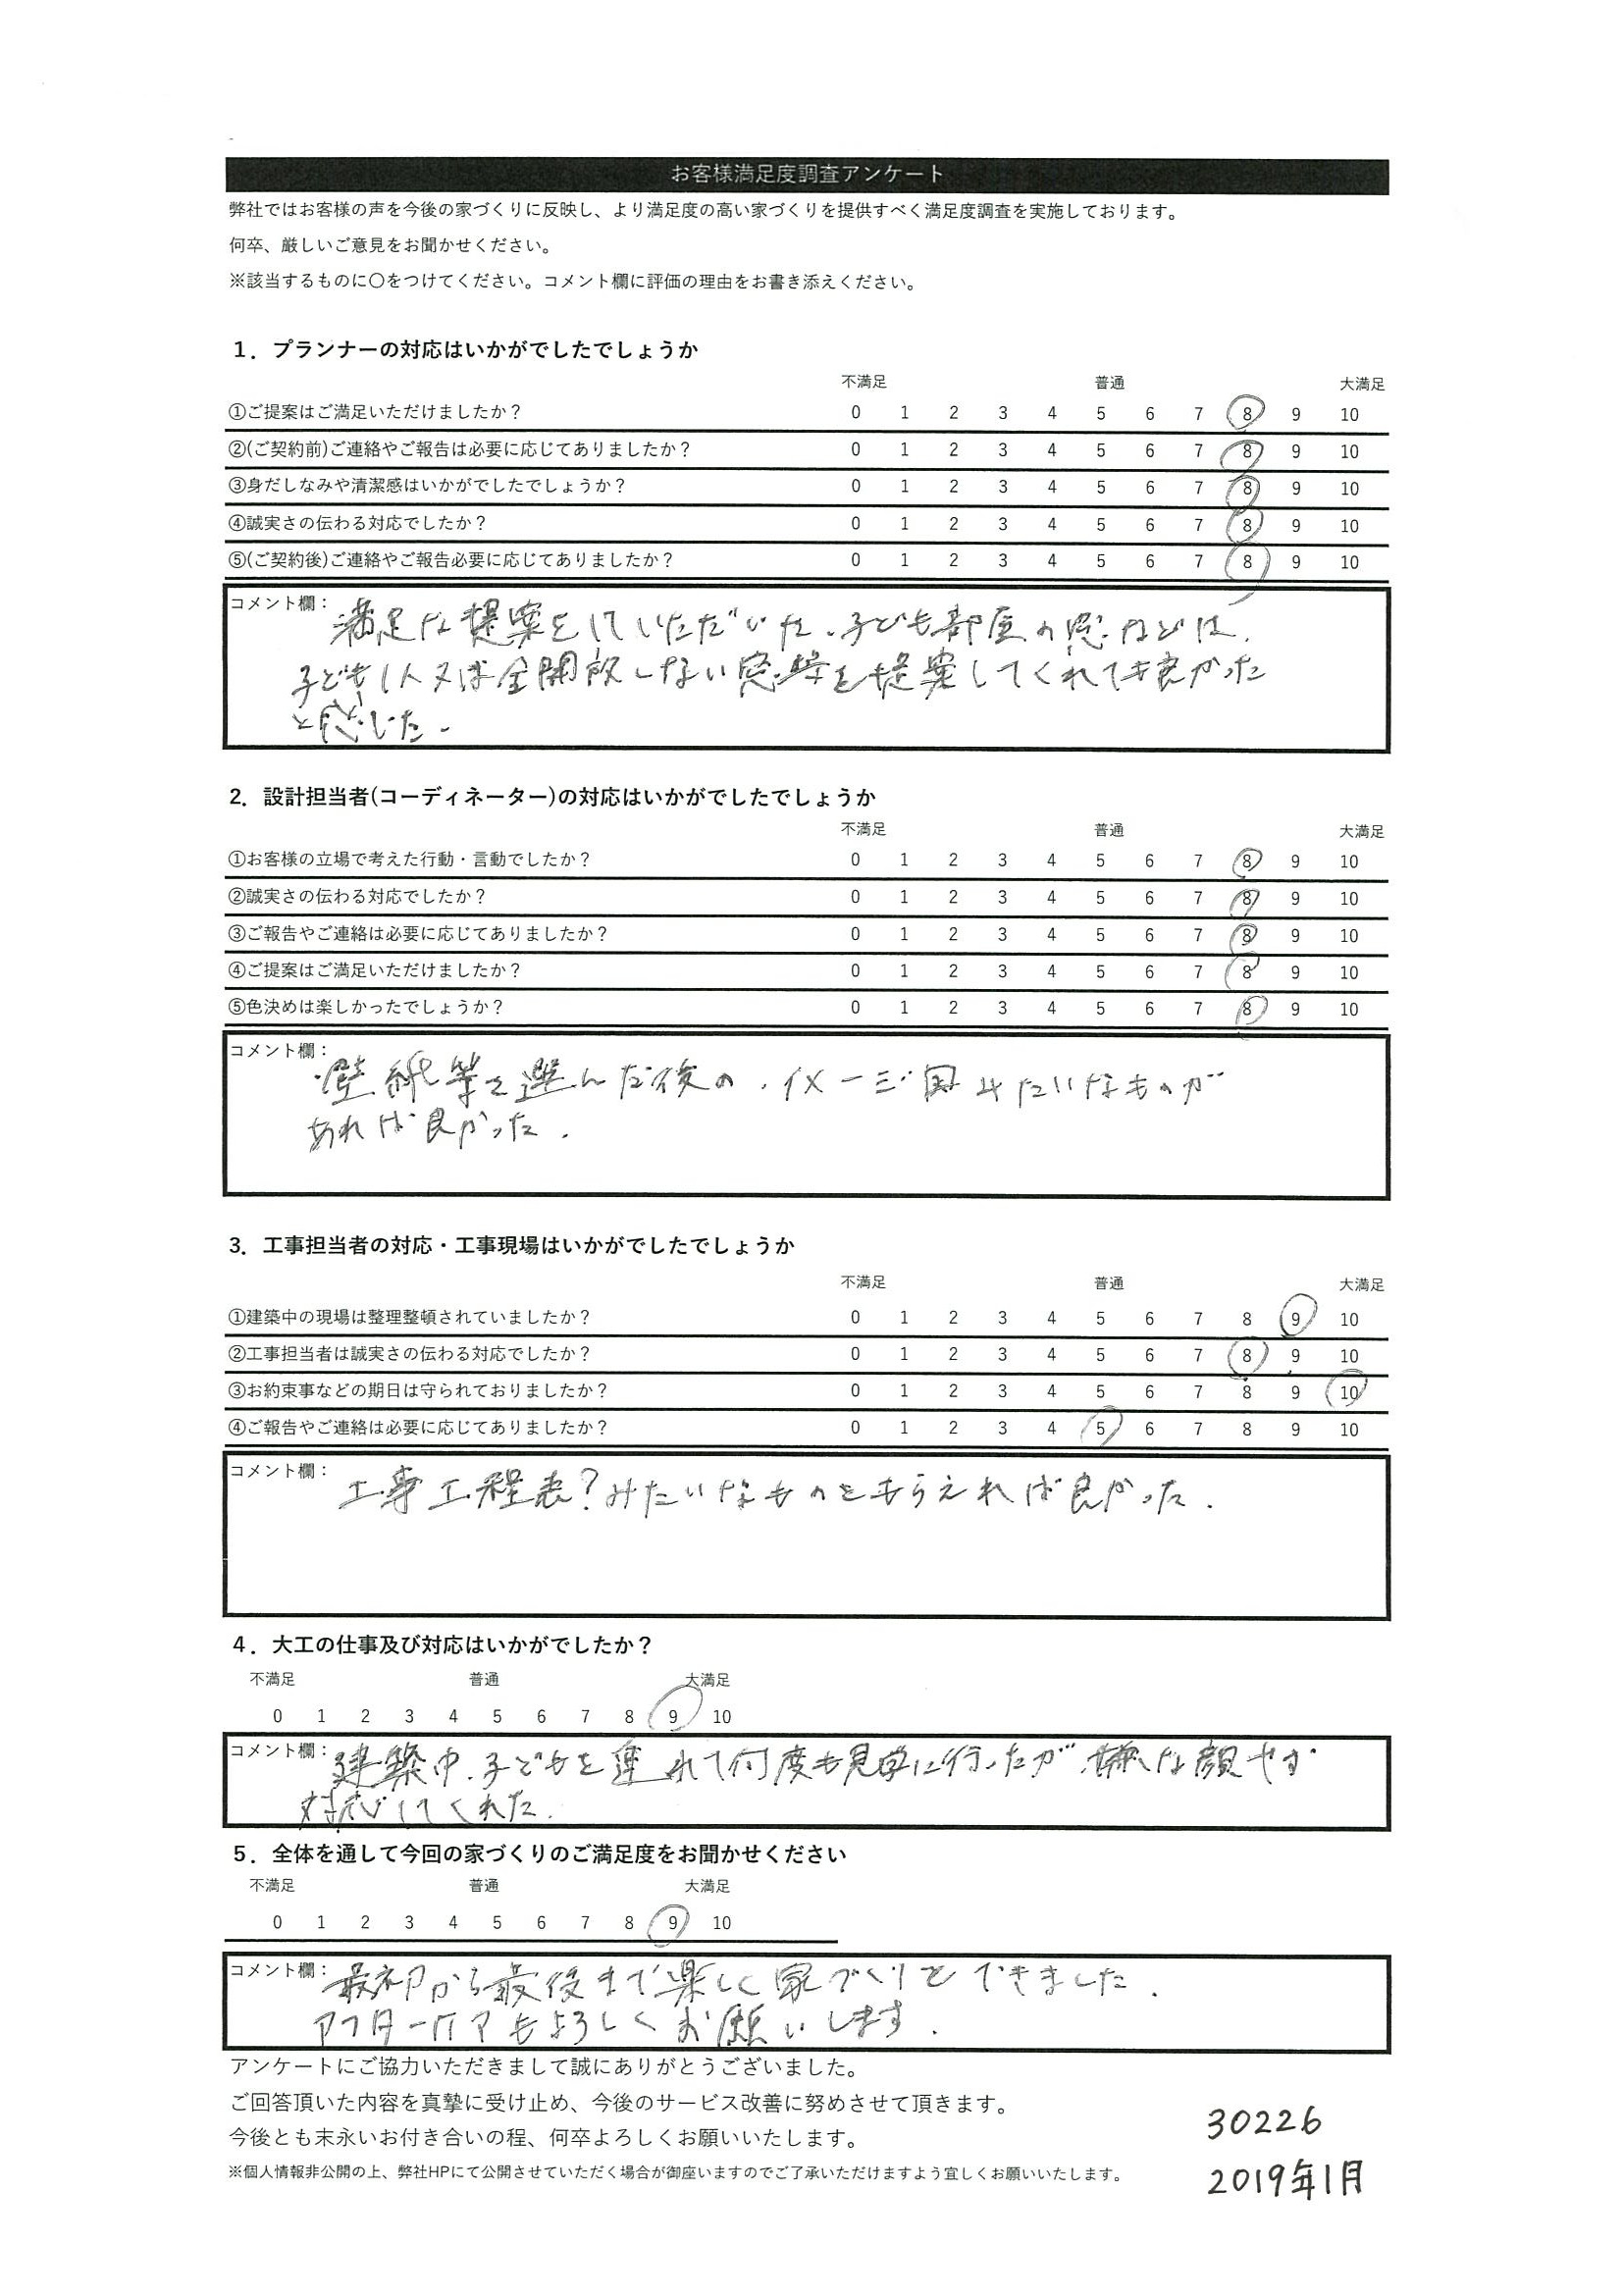 お客様満足度調査アンケート
弊社ではお客様の声を今後の家づくりに反映し、より満足度の高い家づくりを提供すべく満足度調査を実施しております。
何卒、厳しいご意見をお聞かせください。
※該当するものに〇をつけてください。コメント欄に評価の理由をお書き添えください。
1．プランナーの対応はいかがでしたでしょうか
不満足 普通 大満足
①ご提案はご満足いただけましたか？ 0 1 2 3 4 5 6 7 8 9 10
②(ご契約前)ご連絡やご報告は必要に応じてありましたか？ 0 1 2 3 4 5 6 7 8 9 10
③身だしなみや清潔感はいかがでしたでしょうか？ 0 1 2 3 4 5 6 7 8 9 10
④誠実さの伝わる対応でしたか？ 0 1 2 3 4 5 6 7 8 9 10
⑤(ご契約後)ご連絡やご報告必要に応じてありましたか？ 0 1 2 3 4 5 6 7 8 9 10
コメント欄： 満足な提案をしていただいた。子ども部屋の窓などは、
子ども1人又は全開放しない窓等を提案してくれても良かった
と感じた。
2．設計担当者(コーディネーター)の対応はいかがでしたでしょうか
不満足 普通 大満足
①お客様の立場で考えた行動・言動でしたか？ 0 1 2 3 4 5 6 7 8 9 10
②誠実さの伝わる対応でしたか？ 0 1 2 3 4 5 6 7 8 9 10
③ご報告やご連絡は必要に応じてありましたか？ 0 1 2 3 4 5 6 7 8 9 10
④ご提案はご満足いただけましたか？ 0 1 2 3 4 5 6 7 8 9 10
⑤色決めは楽しかったでしょうか？ 0 1 2 3 4 5 6 7 8 9 10
コメント欄： ・壁紙等を選んだ後の、イメージ図みたいなものが
あれば良かった。
3．工事担当者の対応・工事現場はいかがでしたでしょうか
不満足 普通 大満足
①建築中の現場は整理整頓されていましたか？ 0 1 2 3 4 5 6 7 8 9 10
②工事担当者は誠実さの伝わる対応でしたか？ 0 1 2 3 4 5 6 7 8 9 10
③お約束事などの期日は守られておりましたか？ 0 1 2 3 4 5 6 7 8 9 10
④ご報告やご連絡は必要に応じてありましたか？ 0 1 2 3 4 5 6 7 8 9 10
コメント欄： 工事工程表？みたいなものをもらえれば良かった。
4．大工の仕事及び対応はいかがでしたか？
不満足 普通 大満足
0 1 2 3 4 5 6 7 8 9 10
コメント欄： 建築中、子どもを連れて何度も見学に行ったが、嫌な顔せず
対応してくれた。
5．全体を通して今回の家づくりのご満足度をお聞かせください
不満足 普通 大満足
0 1 2 3 4 5 6 7 8 9 10
コメント欄： 最初から最後まで楽しく家づくりをできました。
アフターケアもよろしくお願いします。
アンケートにご協力いただきまして誠にありがとうございました。
ご回答頂いた内容を真摯に受け止め、今後のサービス改善に努めさせて頂きます。
今後とも末永いお付き合いの程、何卒よろしくお願いいたします。
※個人情報非公開の上、弊社HPにて公開させていただく場合が御座いますのでご了承いただけますよう宜しくお願いいたします。
30226
2019年1月